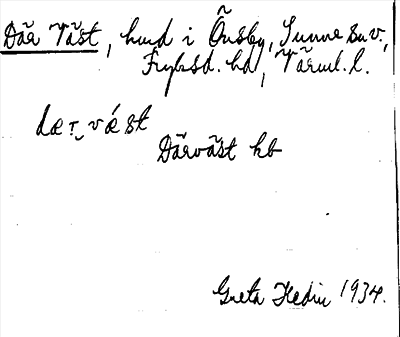 Där Väst, hemd i Önsby, Sunne sn.,
Fryksd. hd, Värml. l.
dær vǽst
Därväst hb
Greta Hedin 1934.